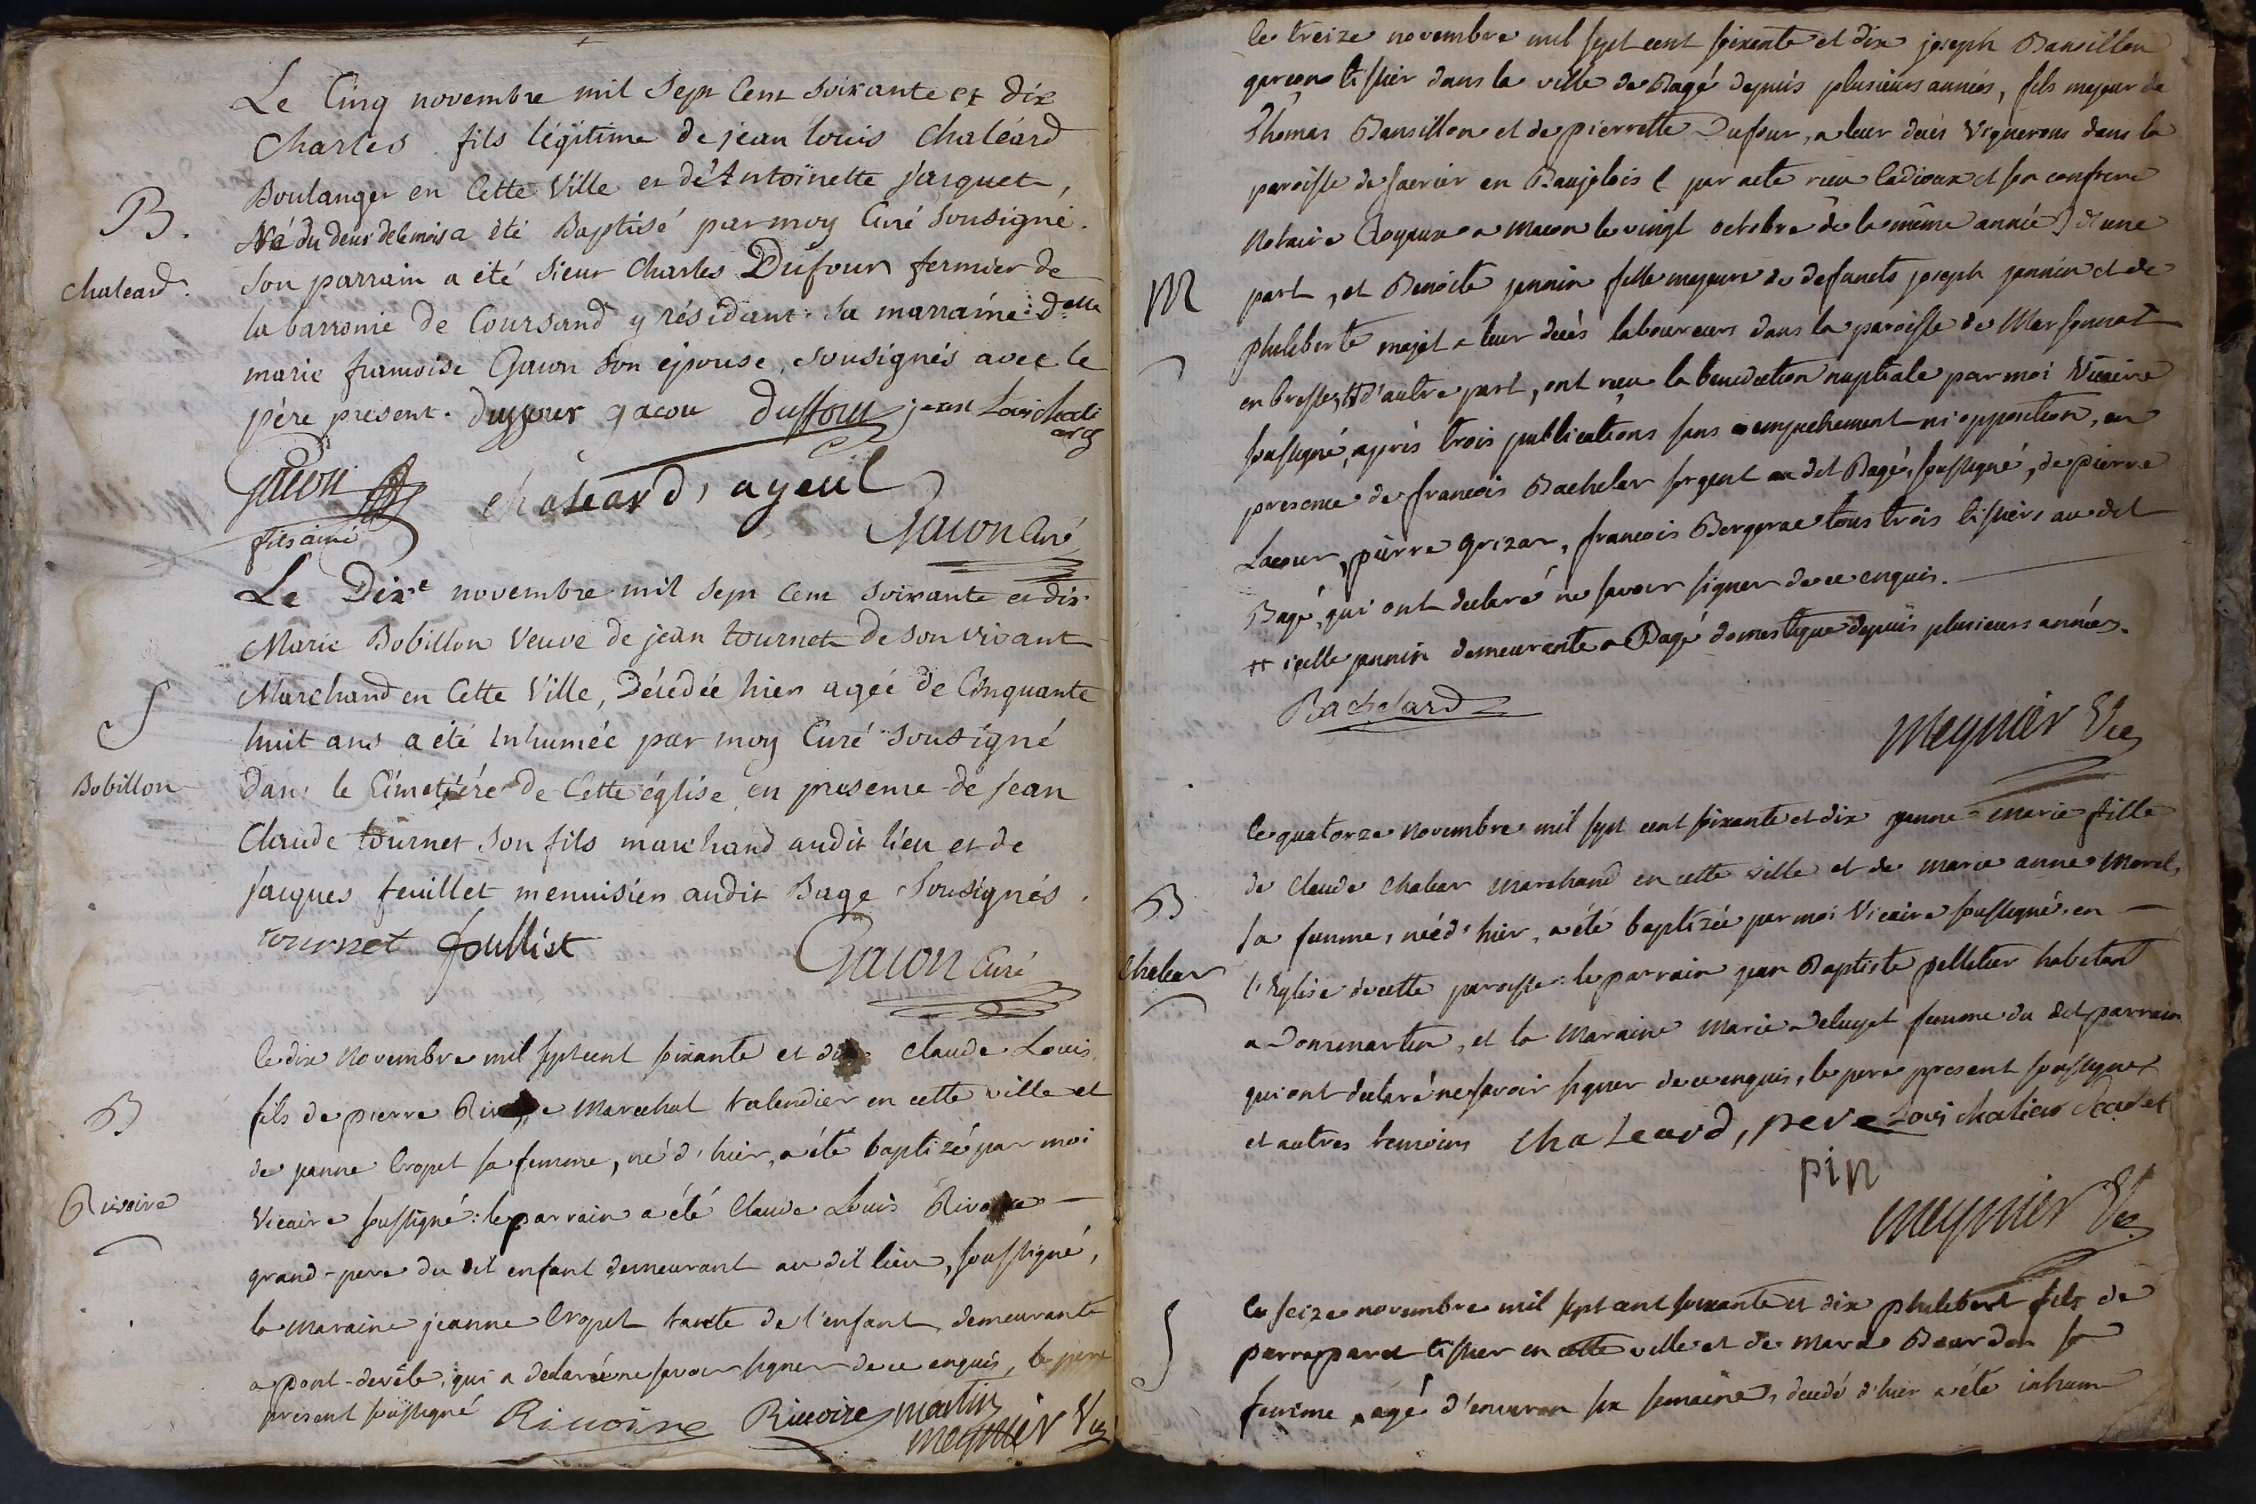 Le Cinq novembre mil Sept Cent Soixante et dix
Charles fils légitime de jean louis Chaléard
Boulanger en Cette Ville et de Antoinette jacquet,
Né du deux de ce mois a été Baptisé par moy Curé Sousigné.
B.
Son parrain a été sieur Charles Dufour fermier de
Chaleard.
la barronie de Coursand y résidant. Sa marraine: Delle
marie francoise Gacon Son épouse, Sousignés avec le
père present. Duffour gacon Duffour jean Louis chale
ard
Gacon
fils ainé
chaleard, ayeul
Gacon Curé
Le Dix novembre mil Sept Cent Soixante et dix
Marie Bobillon Veuve de jean tournet de Son vivant
Marchand en Cette Ville, Décédée hier agée de Cinquante
S
huit ans a été Inhumée par moy Curé Sousigné
Bobillon
Dans le Cimetière de Cette église en presence de jean
Claude tournet Son fils marchand audit lieu et de
jacques feuillet menuisier audit Bage Sousignés.
tournet foullist
Gacon Curé
le dix Novembre mil sept cent soixante et dix Claude Louis
B
fils de pierre Rivoire Marechal talendier en cette ville et
de janne Cropet sa femme, né d'hier, a été baptizé par moi
Rivoire
Vicaire soussigné: le parrain a été Claude Louis Rivoire
grand-pere du dit enfant demeurant au dit lieu, soussigné,
la maraine jeanne Cropet tante de l'enfant demeurante
a pont-develé, qui a declaré ne savoir signer de ce enquis, le père
present soussigné Rivoire Rivoire martin
meynier Vic
le treize novembre mil sept cent soixante et dix joseph Bansillon
garçon tissier dans la ville de Bagé depuis plusieurs années, fils majeur de
Thomas Bansillon et de pierrette Dufour, a leur décès Vignerons dans la
paroisse de en Baujolois ( par acte recu Cadioux et son confrere
Notaire Royaux a Macon le vingt octobre de la même année) d'une
M
part, et Benoite jannin fille majeure de defuncts joseph jannin et de
philiberte majet a leur décès laboureurs dans la paroisse de Marsonnat
en bresse, # d'autre part, ont reçu la benediction nuptiale par moi Vicaire
soussigné, après trois publications sans empechement ni opposition, en
presence de francois Bachelar sergent au dit Bagé, soussigné, de pierre
Lacour, pierre grizar, francois Bergerac tous trois tissiers au dit
Bagé, qui ont declaré ne savoir signer de ce enquis.
# icelle jannin demeurante a Bagé domestique depuis plusieurs années.
Bachelard
Meynier Vic
le quatorze Novembre mil sept cent soixante et dix janne-marie fille
de Claude Chalear Marchand en cette ville et de marie anne Morel
B
sa femme, née d'hier, a été baptizée par moi Vicaire soussigné, en
Chalear
l'Eglise de cette paroisse: le parrain jean Baptiste pelletier habitant
a Donmartin, et la Maraine Marie Deluyet femme du dit parrain
qui ont declaré ne savoir signer de ce enquis, le pere present soussigné
et autres temoins Chaleard, pere Louis chalear Cadet
pin
meynier Vic
S
le seize novembre mil sept cent soixante et dix philibert fils de
pierre tissier en cette ville et de Marie Bourdon sa
femme, agé d'environ six semaine, decedé d'hier a été inhumé